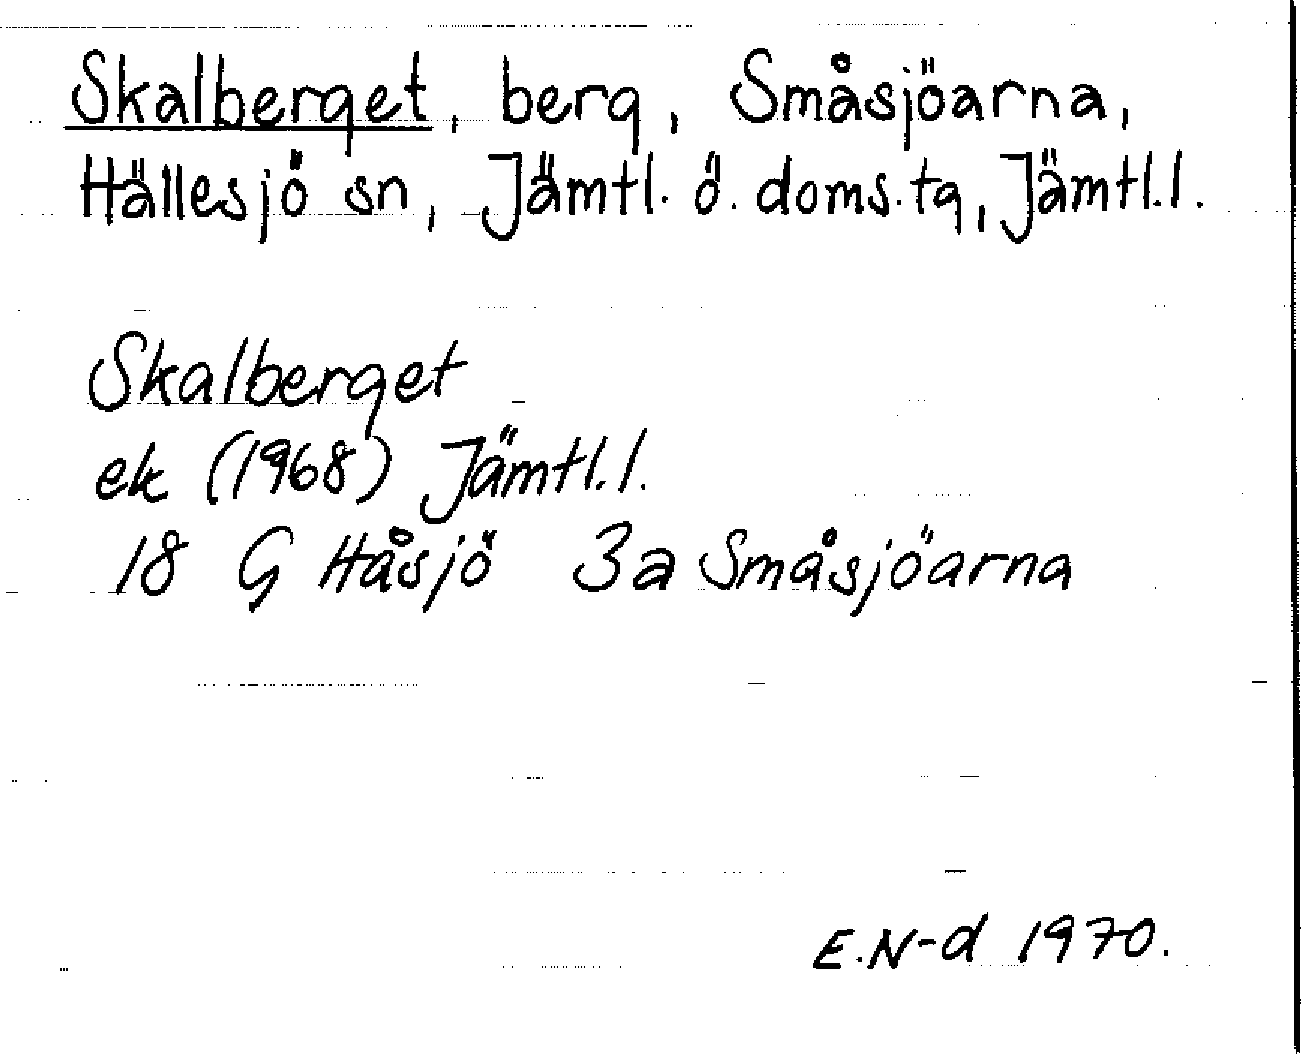 Skalberget, berg, Småsjöarna,
Hällesjö sn, Jämtl. ö. doms.tg, Jämtl.l.
Skalberget
ek (1968) Jämtl.l.
18 G Håsjö 3a Småsjöarna
E.N-d 1970.